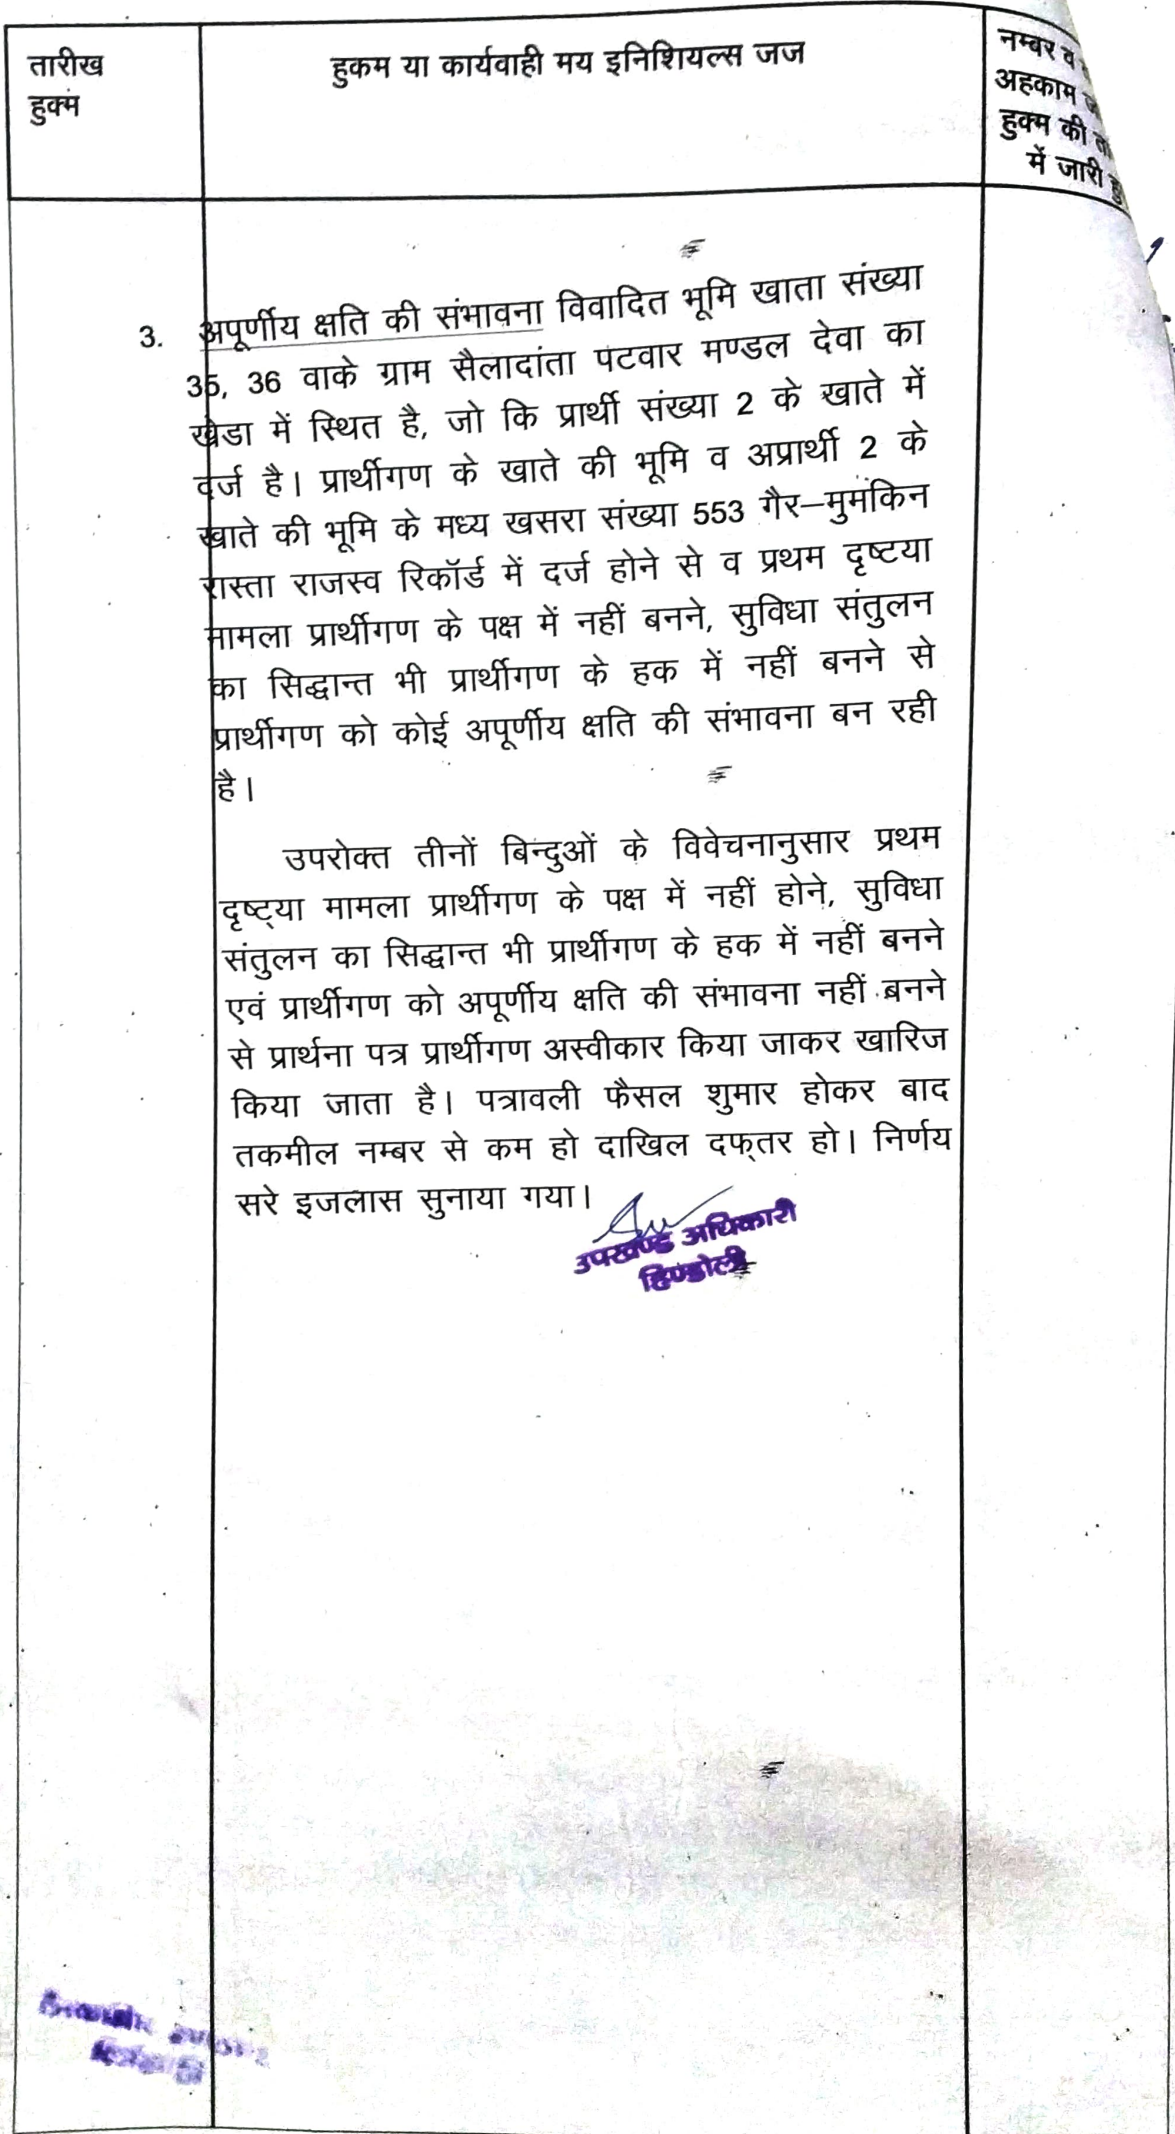 तारीख
हुक्म
हुकम या कार्यवाही मय इनिशियल्स जज
नम्बर व
अहकाम
हुक्म की
में जारी
3. अपूर्णीय क्षति की संभावना विवादित भूमि खाता संख्या
35, 36 वाके ग्राम सैलादांता पटवार मण्डल देवा का
खेडा में स्थित है, जो कि प्रार्थी संख्या 2 के खाते में
दर्ज है। प्रार्थीगण के खाते की भूमि व अप्रार्थी 2 के
खाते की भूमि के मध्य खसरा संख्या 553 गैर–मुमकिन
रास्ता राजस्व रिकॉर्ड में दर्ज होने से व प्रथम दृष्टया
मामला प्रार्थीगण के पक्ष में नहीं बनने, सुविधा संतुलन
का सिद्धान्त भी प्रार्थीगण के हक में नहीं बनने से
प्रार्थीगण को कोई अपूर्णीय क्षति की संभावना बन रही
है।
उपरोक्त तीनों बिन्दुओं के विवेचनानुसार प्रथम
दृष्ट्या मामला प्रार्थीगण के पक्ष में नहीं होने, सुविधा
संतुलन का सिद्धान्त भी प्रार्थीगण के हक में नहीं बनने
एवं प्रार्थीगण को अपूर्णीय क्षति की संभावना नहीं बनने
से प्रार्थना पत्र प्रार्थीगण अस्वीकार किया जाकर खारिज
किया जाता है। पत्रावली फैसल शुमार होकर बाद
तकमील नम्बर से कम हो दाखिल दफ्तर हो। निर्णय
सरे इजलास सुनाया गया।
उपखण्ड अधिकारी
हिण्डोली